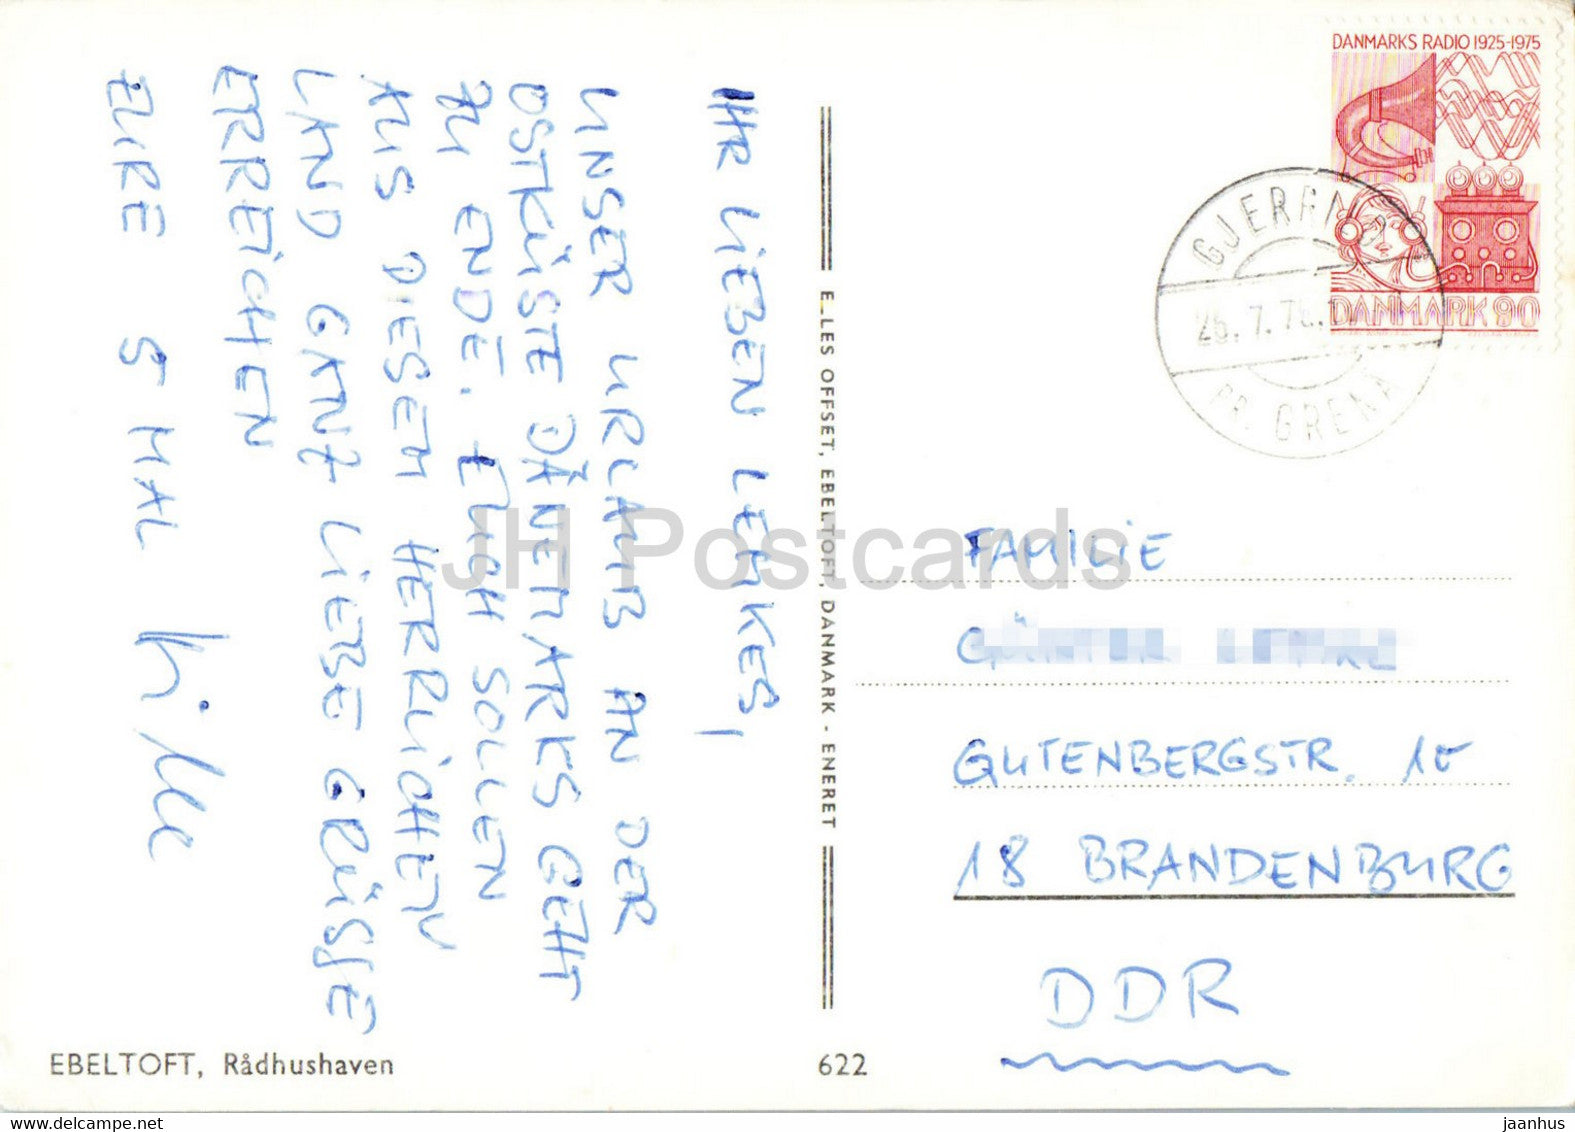 IHR LIEBEN LEMKES,
UNSER URLAUB AN DER
OSTKÜSTE DÄNEMARKS GEHT
ZU ENDE. EUCH SOLLEN
AUS DIESEM HERRLICHEN
LAND GANZ LIEBE GRÜSSE
ERREICHEN
EURE 5 MAL
EBELTOFT, Rådhushaven
E_LES OFFSET, EBELTOFT, DANMARK - ENERET
622
DANMARKS RADIO 1925-1975
DANMARK 90
GJERRILD
PR. GRENA
FAMILIE
GUTENBERGSTR. 10
18 BRANDENBURG
DDR
JH Postcards
www.delcampe.net
jaanhus